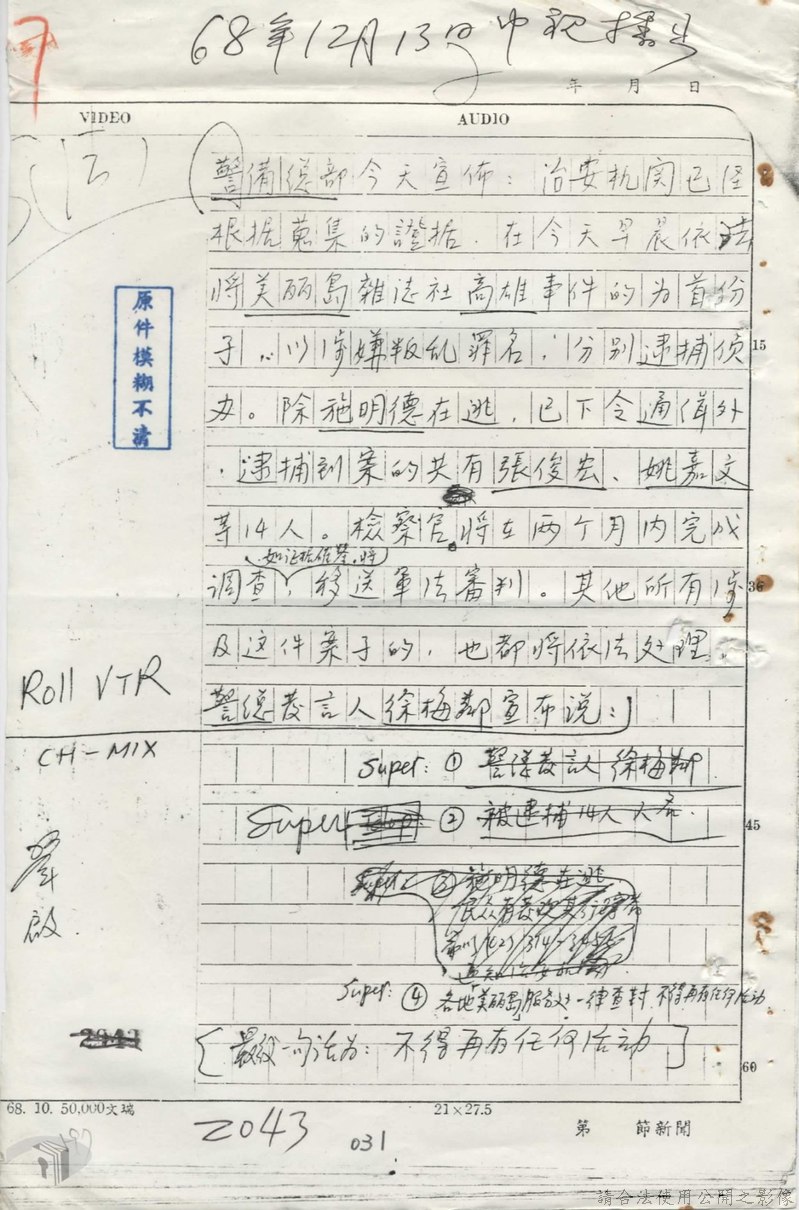 68年12月13日中視播出
年 月 日
VIDEO AUDIO
警備總部今天宣佈：治安机関已经
根据蒐集的證据，在今天早晨依法
将美丽島雜志社高雄事件的为首份
子，以涉嫌叛乱罪名，分别逮捕侦
办。除施明德在逃，已下令通缉外
，逮捕到案的共有張俊宏、姚嘉文
等14人。檢察官将在两个月内完成
如证据確鑿，将
调查，移送軍法審判。其他所有涉
及这件案子的，也都将依法处理。
警总发言人徐梅鄰宣布说：
原件模糊不清
15
36
45
60
Roll VTR
CH-MIX
Super: ① 警總发言人徐梅鄰
Super ② 被逮捕14人人名
③ 施明德在逃
Super: ④ 各地美丽島服务处一律查封 不得再有任何活动
[最後一句话为：不得再有任何活动]
2043
68. 10. 50,000文瑞
21×27.5
2043
031
第 節新聞
請合法使用公開之影像